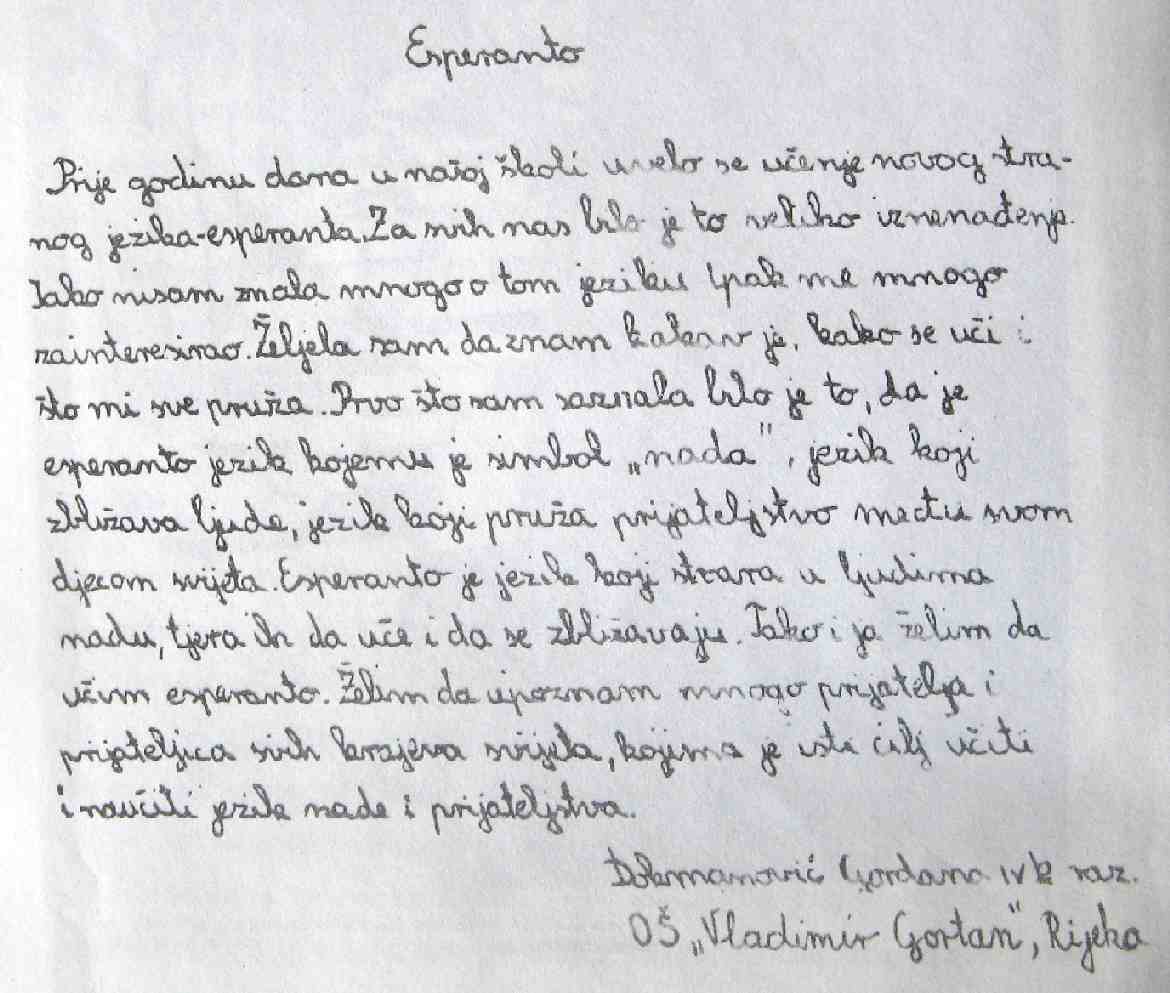 Esperanto
Prije godinu dana u našoj školi uvelo se učenje novog stra-
nog jezika-esperanta. Za svih nas bilo je to veliko iznenađenje.
Iako nisam znala mnogo o tom jeziku ipak me mnogo
zainteresirao. Željela sam da znam kakav je, kako se uči i
što mi sve pruža. Prvo što sam saznala bilo je to, da je
esperanto jezik kojemu je simbol „nada", jezik koji
zbližava ljude, jezik koji pruža prijateljstvo među svom
djecom svijeta. Esperanto je jezik koji stvara u ljudima
nadu, tjera ih da uče i da se zbližavaju. Tako i ja želim da
učim esperanto. Želim da upoznam mnogo prijatelja i
prijateljica svih krajeva svijeta, kojima je isti cilj učiti
i naučiti jezik nade i prijateljstva.
Gordana IV raz.
OŠ „Vladimir Gortan", Rijeka